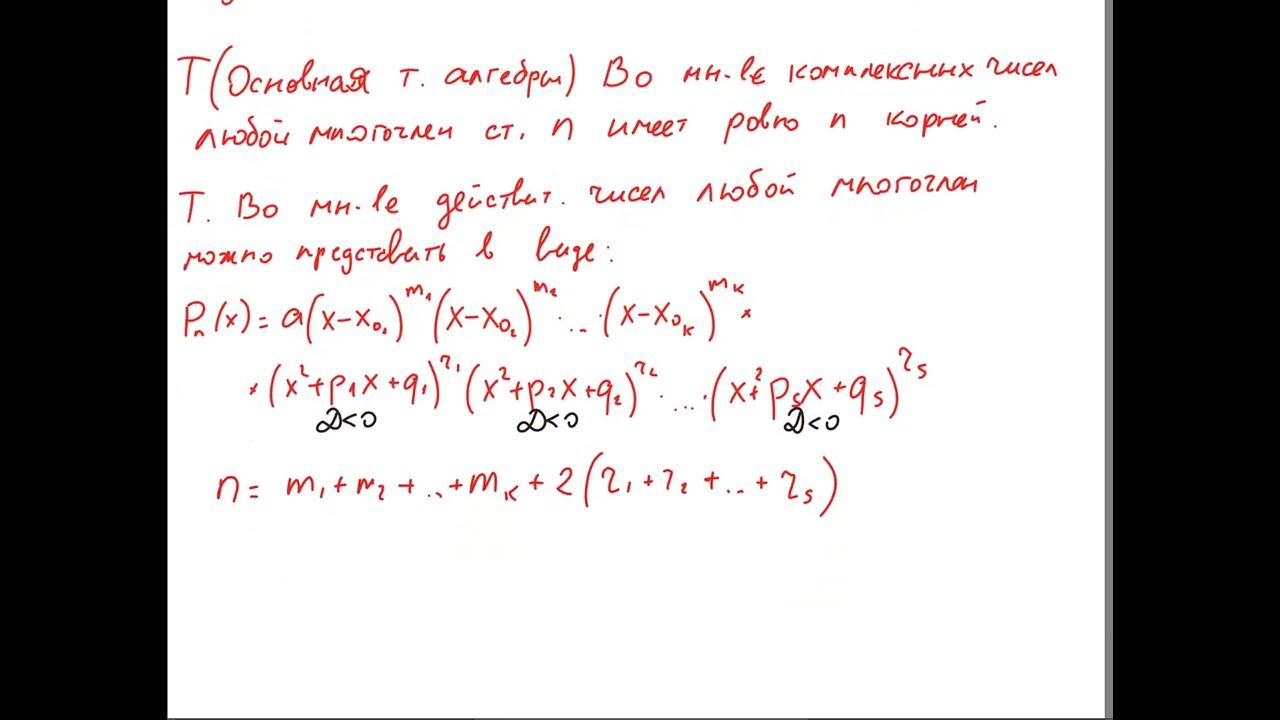 Т(Основная т. алгебры) Во мн-ве комплексных чисел
любой многочлен ст. n имеет ровно n корней.
Т. Во мн-ве действит. чисел любой многочлен
можно представить в виде:
Pₙ(x) = a(x-x₀₁)^m₁ (x-x₀₂)^m₂ ... (x-x₀ₖ)^mₖ ×
× (x²+p₁x+q₁)^r₁ (x²+p₂x+q₂)^r₂ ... (x²+pₛx+qₛ)^rₛ
D<0 D<0 D<0
n = m₁+m₂+...+mₖ+2(r₁+r₂+...+rₛ)